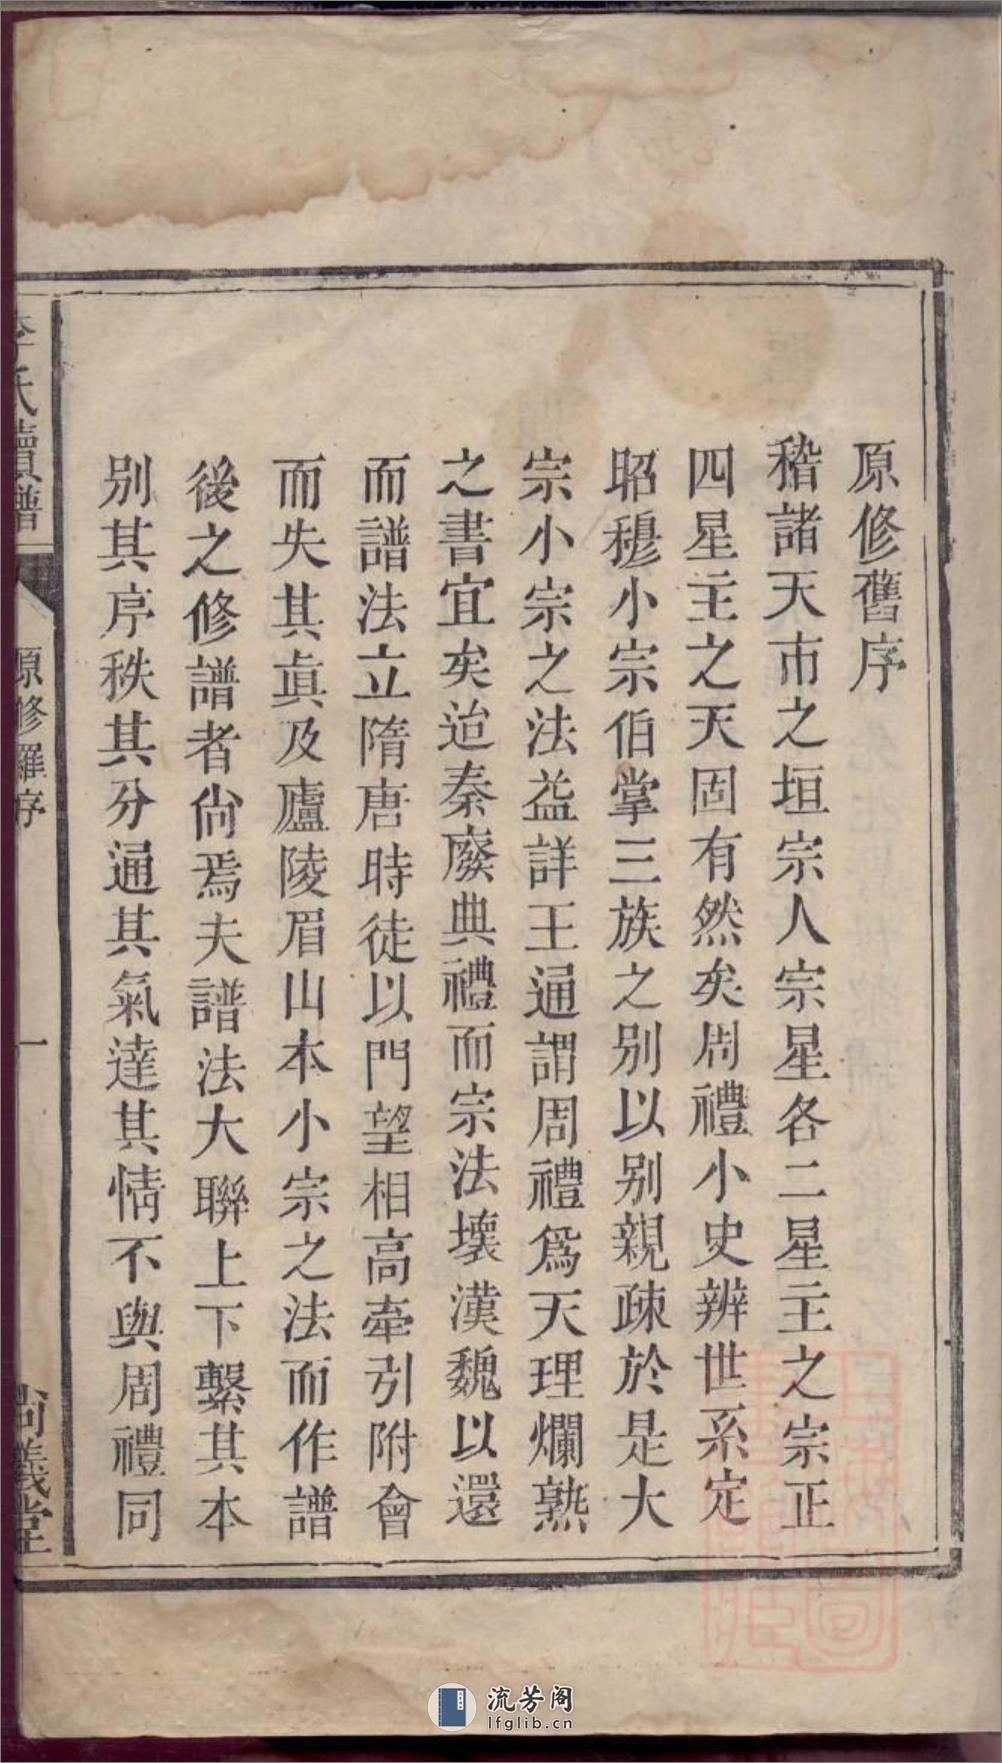 原修舊序
稽諸天市之垣宗人宗星各二星主之宗正
四星主之天固有然矣周禮小史辨世系定
昭穆小宗伯掌三族之別以别親疎於是大
宗小宗之法益詳王通謂周禮爲天理爛熟
之書宜矣迨秦廢典禮而宗法壞漢魏以還
而譜法立隋唐時徒以門望相高牽引附會
而失其眞及廬陵眉山本小宗之法而作譜
後之修譜者尙焉夫譜法大聯上下繫其本
别其序秩其分通其氣達其情不與周禮同
李氏續譜 原修羅序 一 尚義堂
流芳阁
lfglib.cn